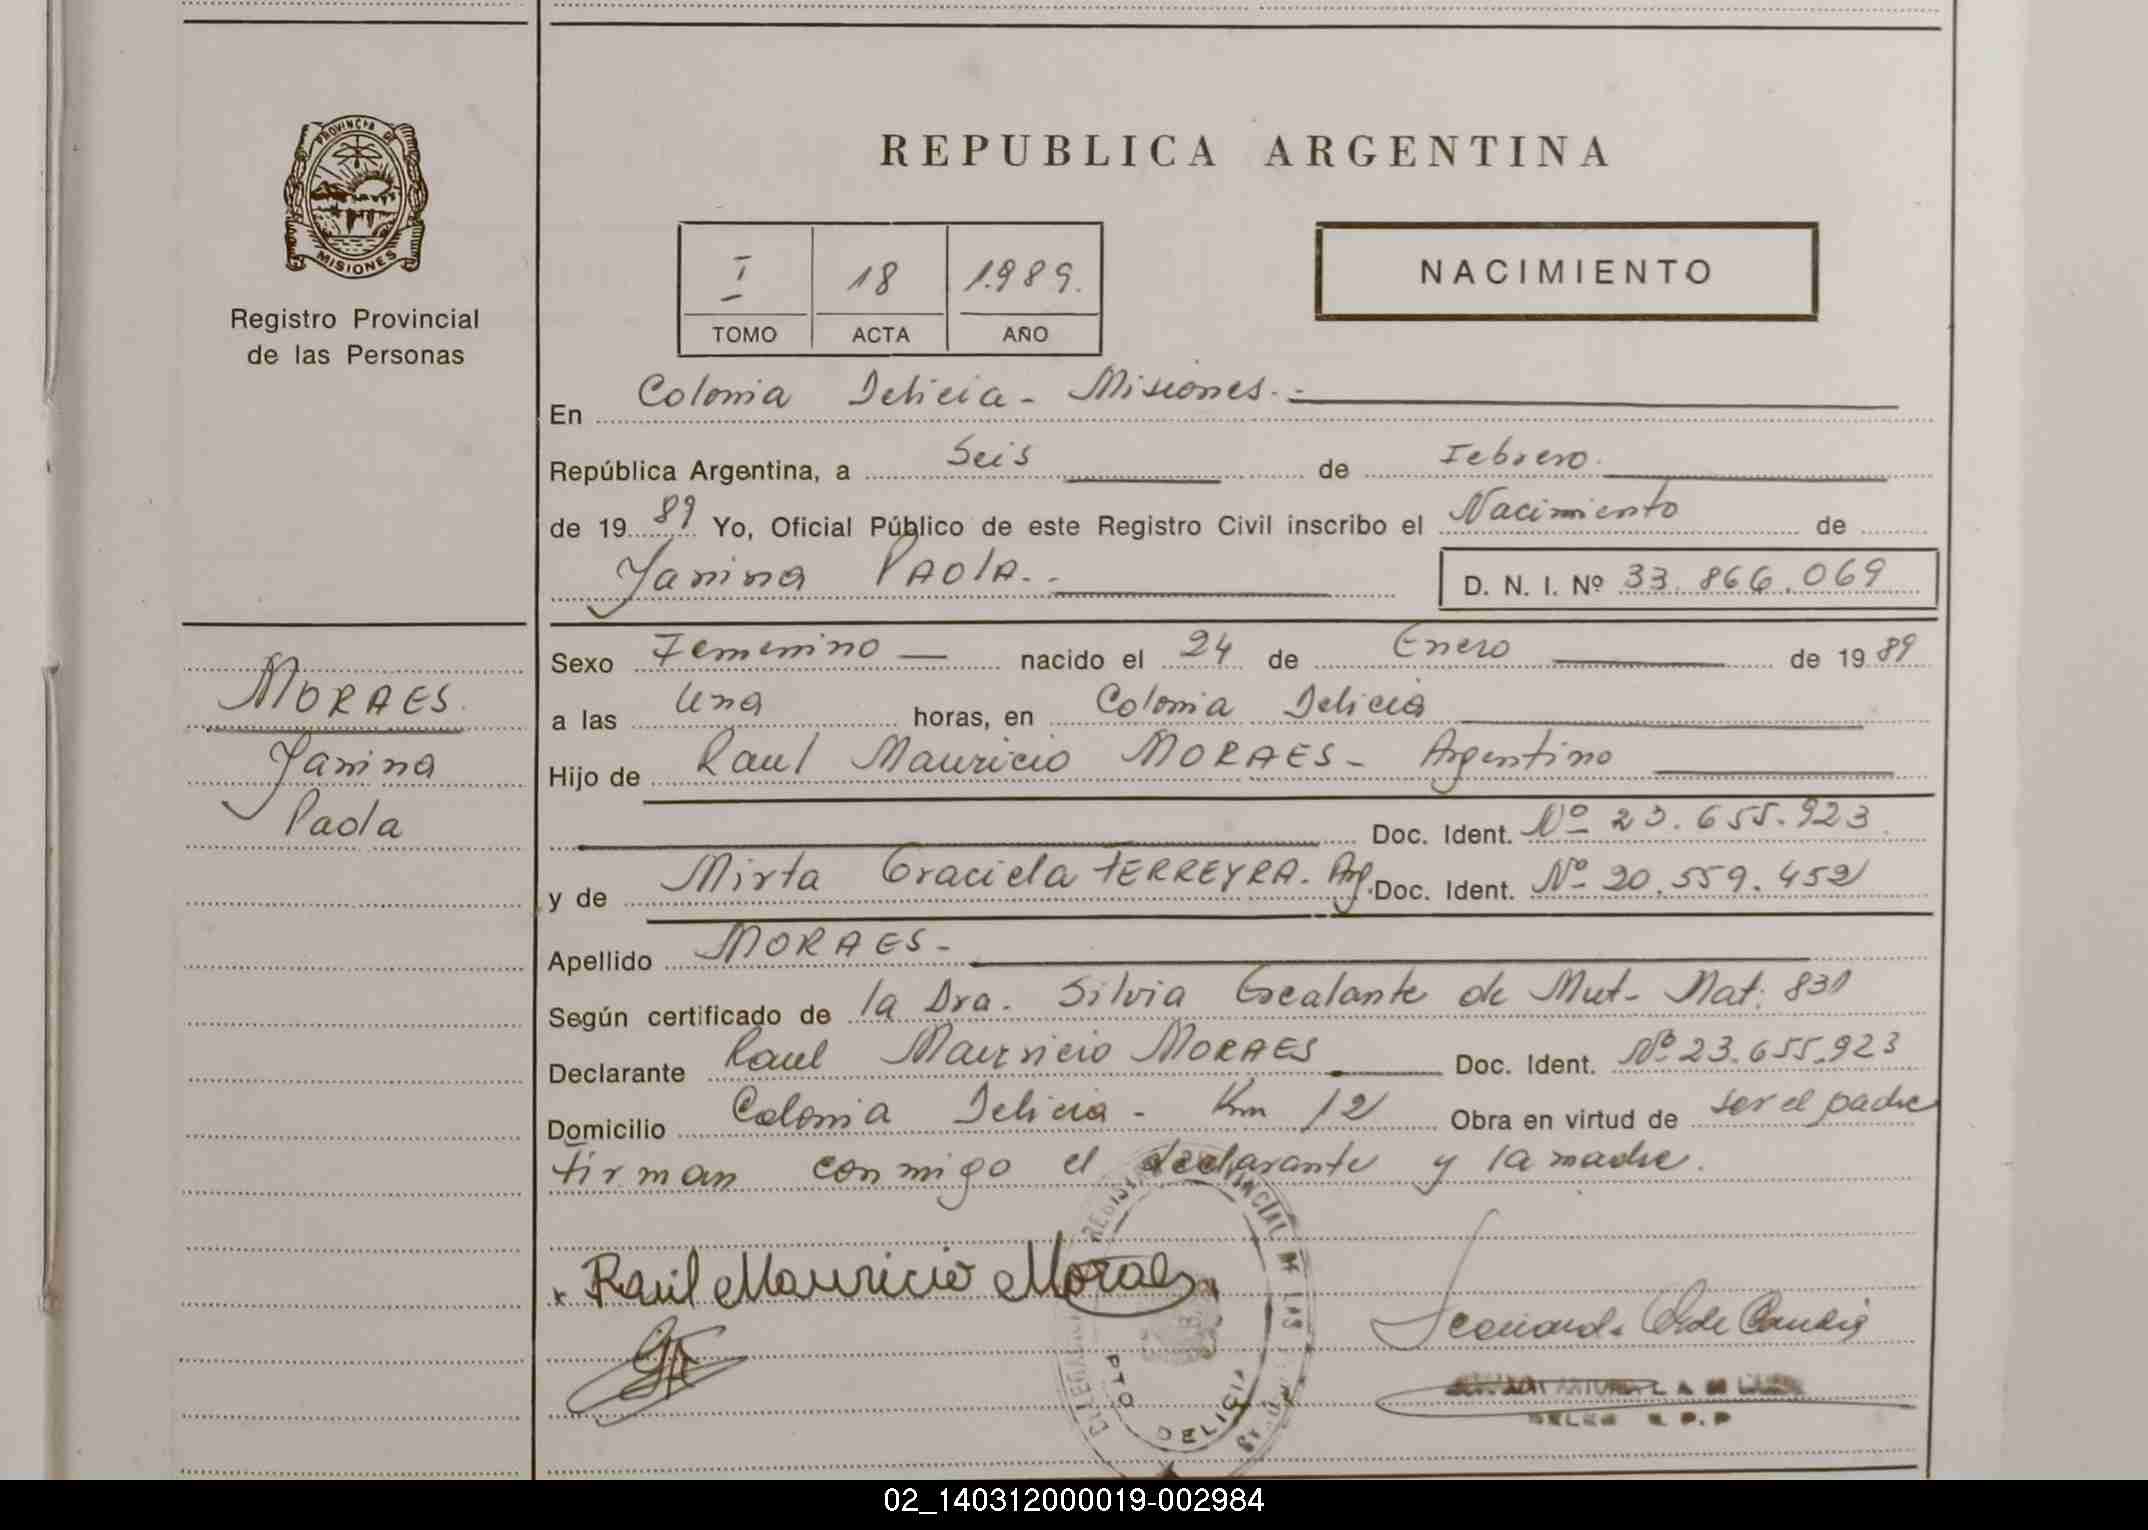 PROVINCIA DE
MISIONES
Registro Provincial
de las Personas
REPUBLICA ARGENTINA
I 18 1.989.
TOMO ACTA AÑO
NACIMIENTO
En Colonia Delicia - Misiones.-
República Argentina, a Seis de Febrero.
de 19 89 Yo, Oficial Público de este Registro Civil inscribo el Nacimiento de
Yanina PAOlA.. D. N. I. Nº 33.866.069
Sexo Femenino — nacido el 24 de Enero de 19 89
a las Una horas, en Colonia Delicia
Hijo de Raul Mauricio MORAES - Argentino
Doc. Ident. Nº 23.655.923
y de Mirta Graciela FERREYRA. Arg. Doc. Ident. Nº 20.559.452
Apellido MORAES -
Según certificado de la Dra. Silvia Escalante de Mut - Mat. 831
Declarante Raul Mauricio MORAES Doc. Ident. Nº 23.655.923
Domicilio Colonia Delicia - Km 12 Obra en virtud de ser el padre
firman conmigo el declarante y la madre.
MORAES.
Yanina
Paola
x Raúl Mauricio Moraes
PTO DELICIA
02_140312000019-002984